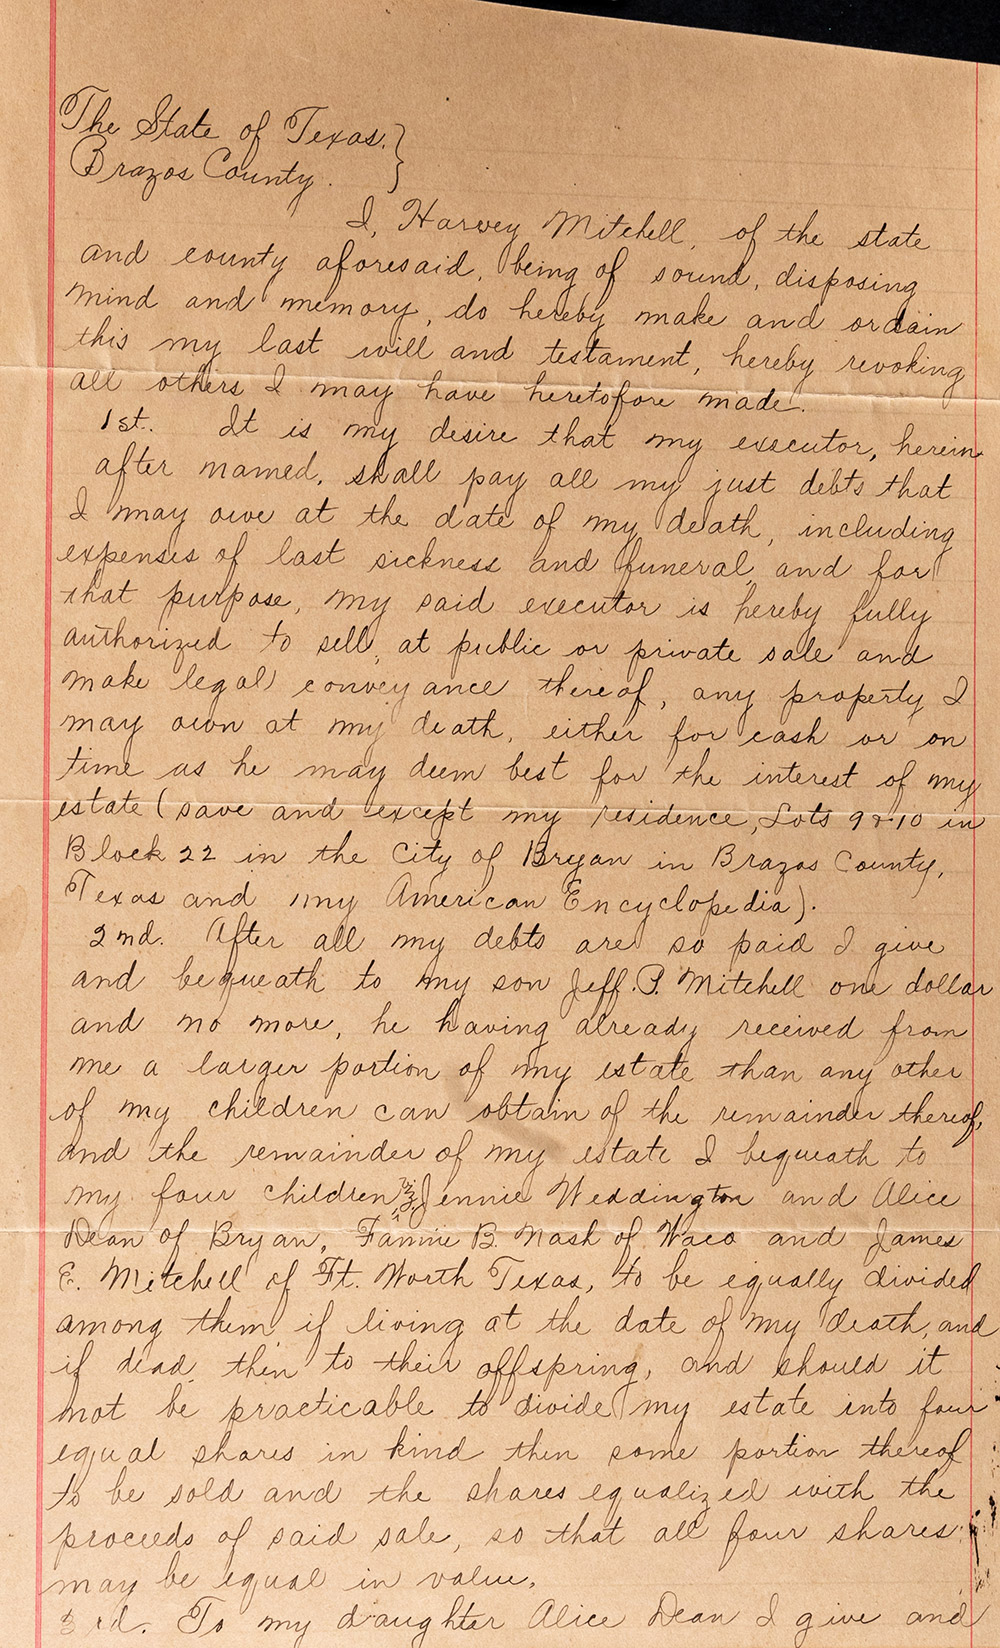 The State of Texas.}
Brazos County. }
I, Harvey Mitchell, of the state
and county aforesaid, being of sound, disposing
mind and memory, do hereby make and ordain
this my last will and testament, hereby revoking
all others I may have heretofore made.
1st. It is my desire that my executor, herein
after named, shall pay all my just debts that
I may owe at the date of my death, including
expenses of last sickness and funeral, and for
that purpose, my said executor is hereby fully
authorized to sell, at public or private sale and
make legal conveyance thereof, any property I
may own at my death, either for cash or on
time as he may deem best for the interest of my
estate (save and except my residence, Lots 9 & 10 in
Block 22 in the City of Bryan in Brazos County,
Texas and my American Encyclopedia).
2nd. After all my debts are so paid I give
and bequeath to my son Jeff. P. Mitchell one dollar
and no more, he having already received from
me a larger portion of my estate than any other
of my children can obtain of the remainder thereof,
and the remainder of my estate I bequeath to
my four children viz, Jennie Weddington and Alice
Dean of Bryan, Fannie B. Nash of Waco and James
E. Mitchell of Ft. Worth Texas, to be equally divided
among them if living at the date of my death, and
if dead, then to their offspring, and should it
not be practicable to divide my estate into four
equal shares in kind then some portion thereof
to be sold and the shares equalized with the
proceeds of said sale, so that all four shares
may be equal in value.
3rd. To my daughter Alice Dean I give and